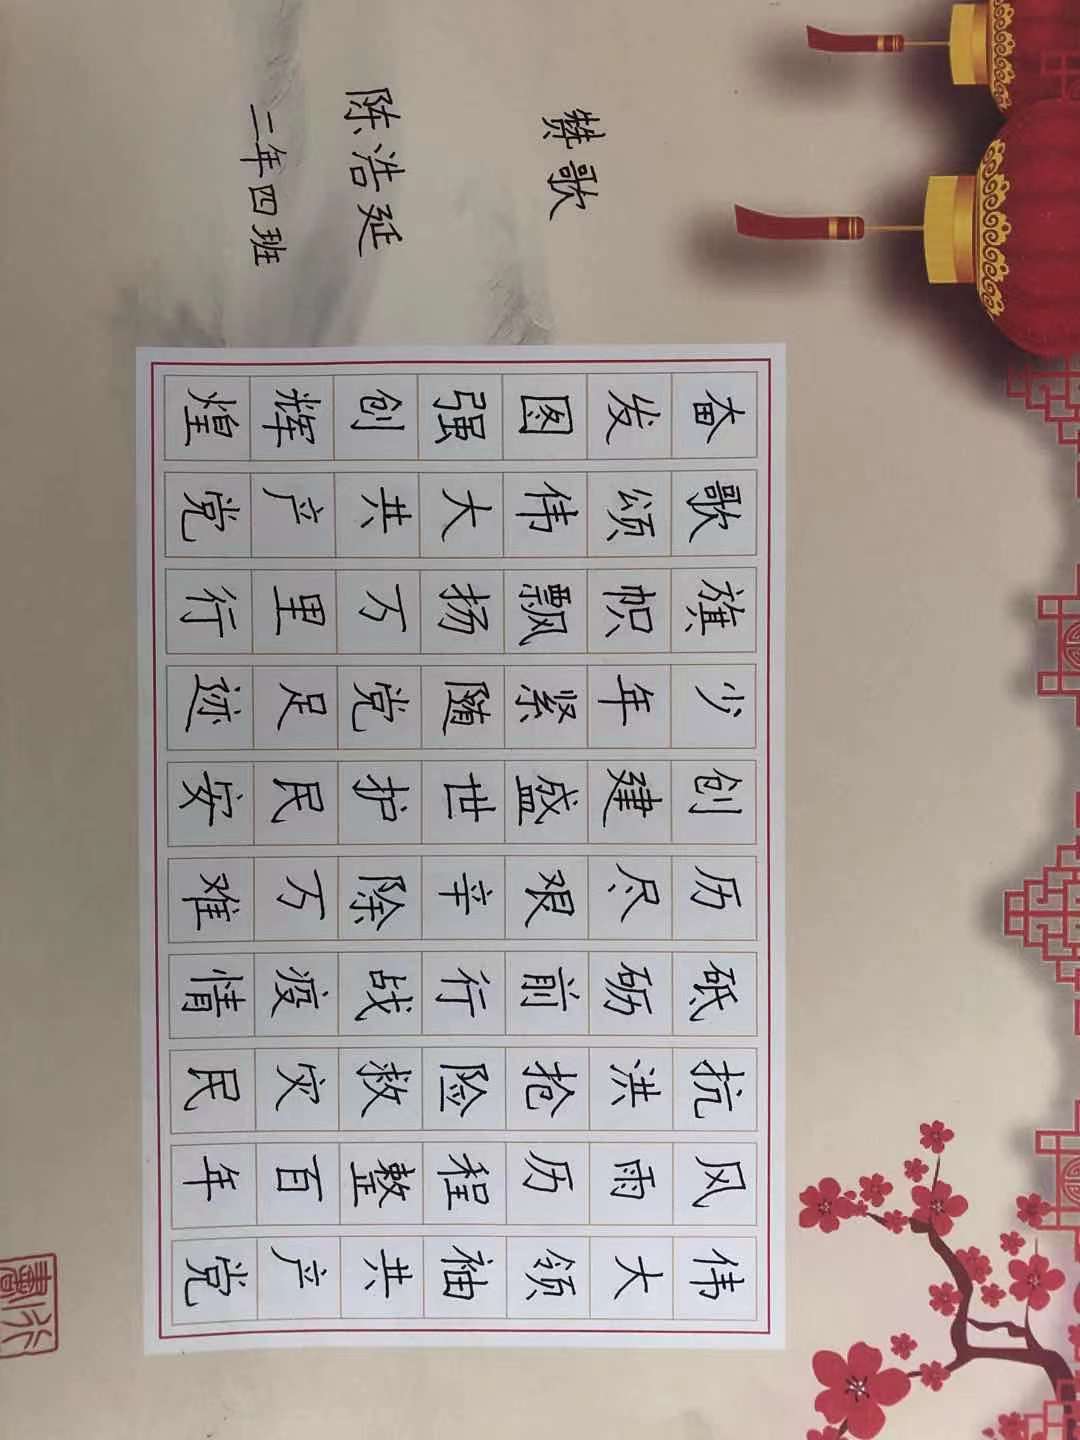 赞歌
伟大领袖共产党
风雨历程整百年
抗洪抢险救灾民
砥砺前行战疫情
历尽艰辛除万难
创建盛世护民安
少年紧随党足迹
旗帜飘扬万里行
歌颂伟大共产党
奋发图强创辉煌
陈浩延
二年四班